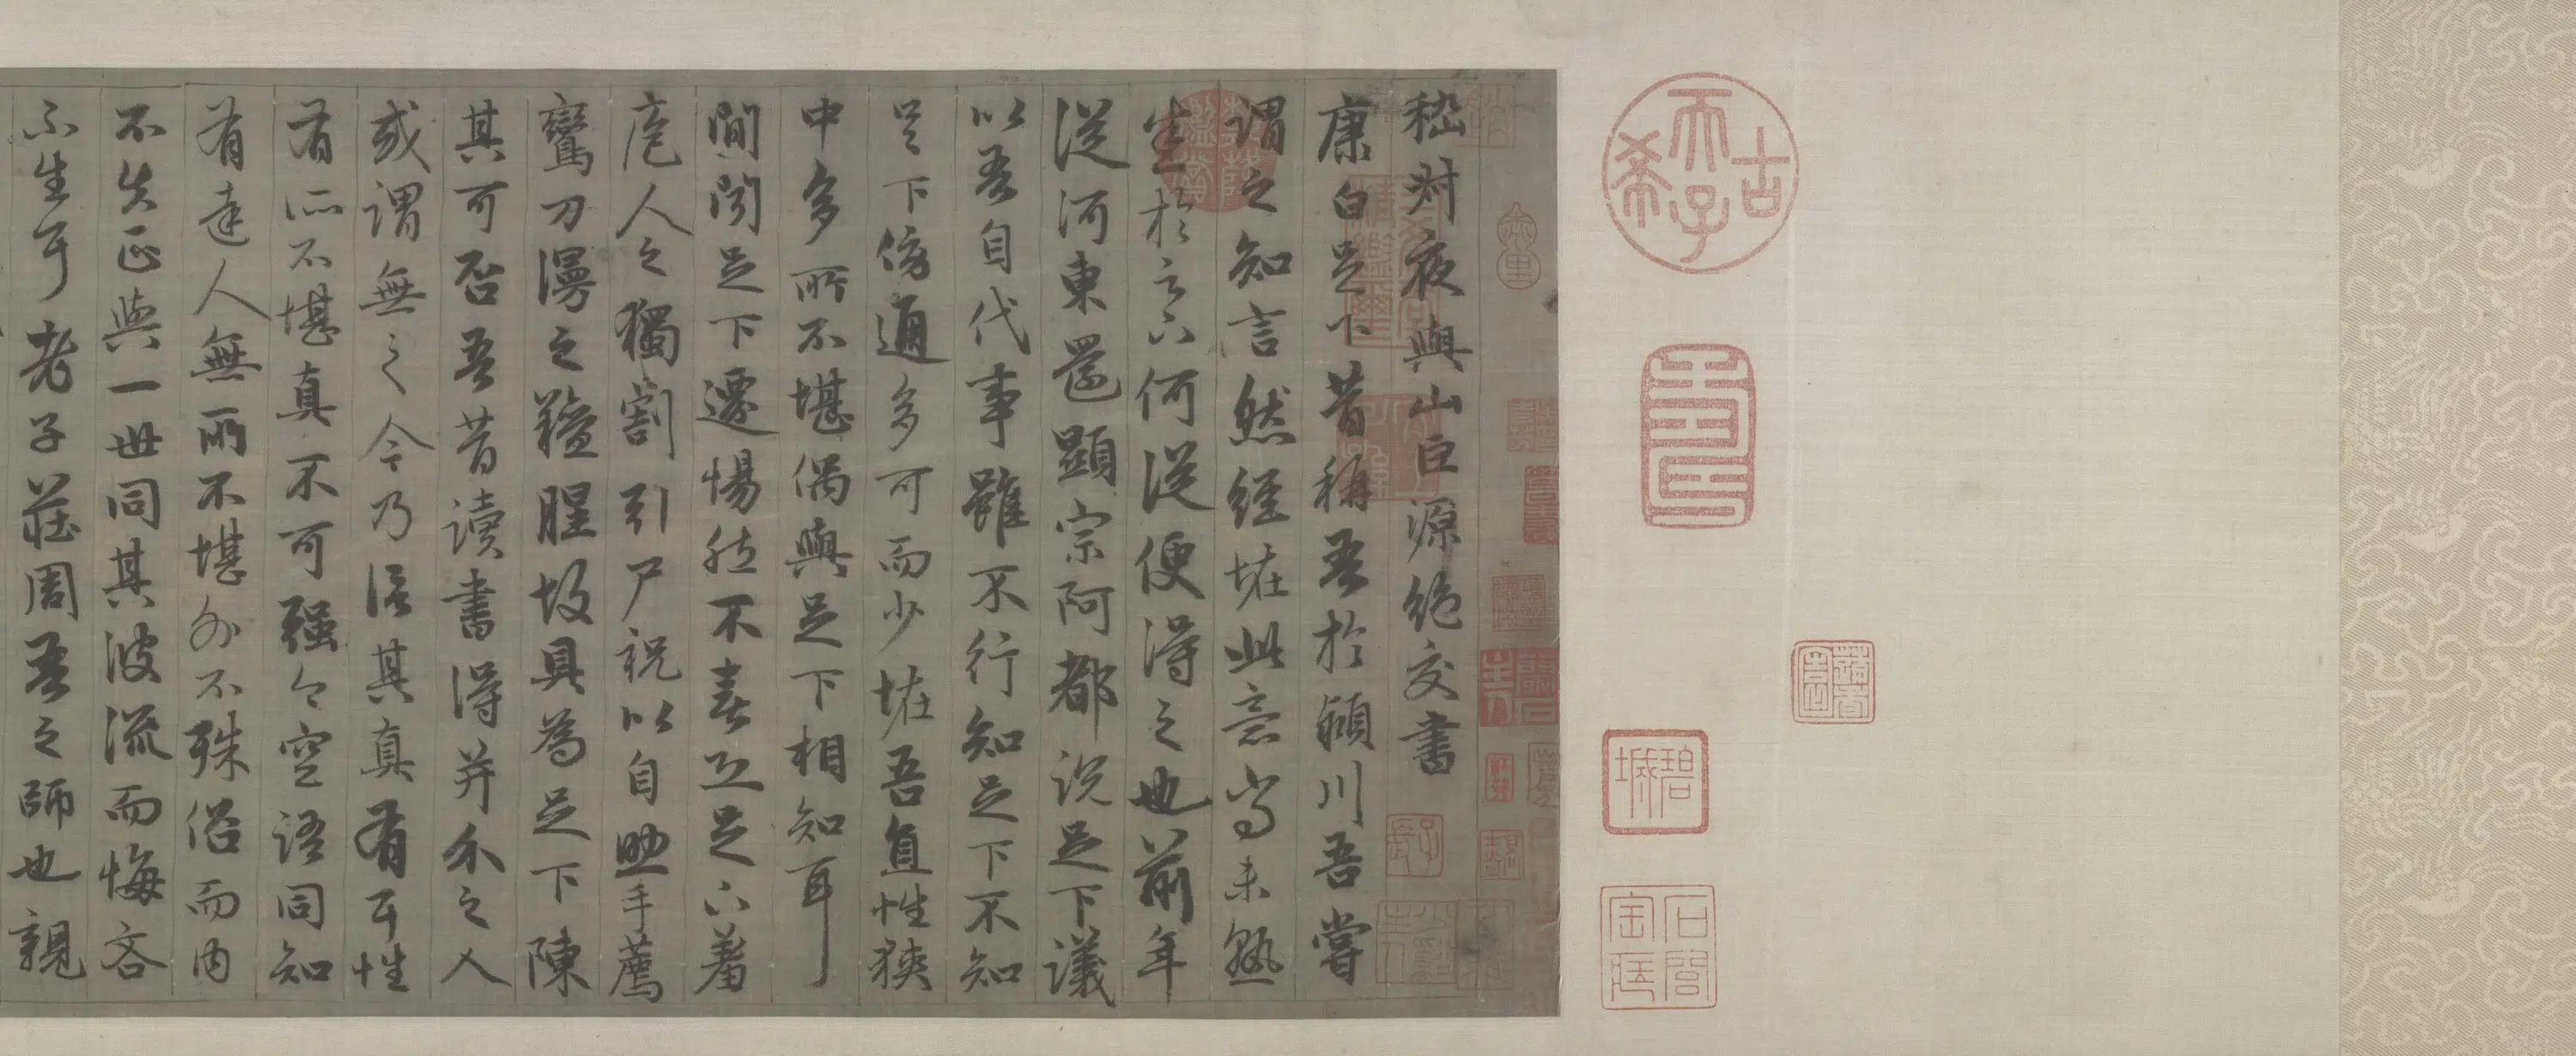 嵇叔夜與山巨源絶交書
康白足下昔稱吾於潁川吾嘗
謂之知言然經恠此意尚未熟
悉於足下何從便得之也前年
從河東還顯宗阿都說足下議
以吾自代事雖不行知足下不知
吾下傍通多可而少恠吾直性狹
中多所不堪偶與足下相知耳
間聞足下遷惕然不喜恐足下羞
庖人之獨割引尸祝以自助手薦
鸞刀漫之羶腥故具為足下陳
其可否吾昔讀書得并介之人
或謂無之今乃信其真有耳性
有所不堪真不可强今空語同知
有達人無所不堪外不殊俗而内
不失正與一世同其波流而悔吝
不生耳老子莊周吾之師也親
古希天子
壽
蕉林書屋
碧城
石渠寶笈